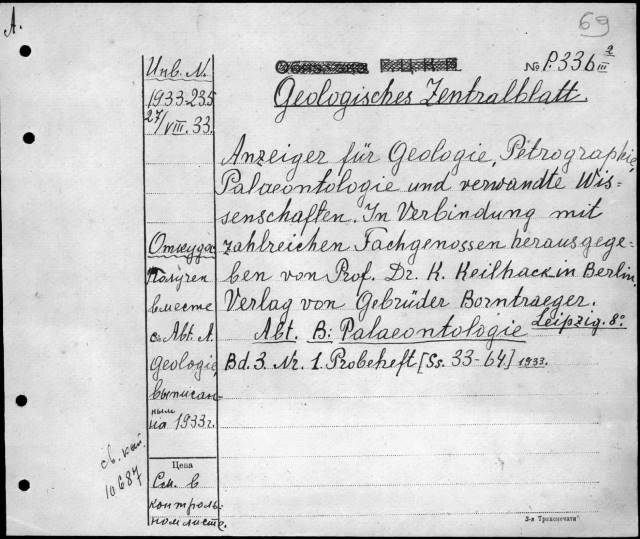 A.
69
№ P.336 2/III
Geologisches Zentralblatt.
Инв. N.
1933-235
27/VIII. 33.
Anzeiger für Geologie, Petrographie,
Palaeontologie und verwandte Wis=
senschaften. In Verbindung mit
zahlreichen Fachgenossen herausgege=
ben von Prof. Dr. K. Keilhack in Berlin.
Verlag von Gebrüder Borntraeger.
Leipzig. 8°
Abt. B: Palaeontologie
Bd. 3. Nr. 1. Probeheft [Ss. 33-64.] 1933.
Откуда:
Получен
вместе
с Abt. A.
Geologie,
выписан-
ным
на 1933 г.
св. кат.
10687
Цена
См. в
контроль-
ном листе.
3-я Транспечати